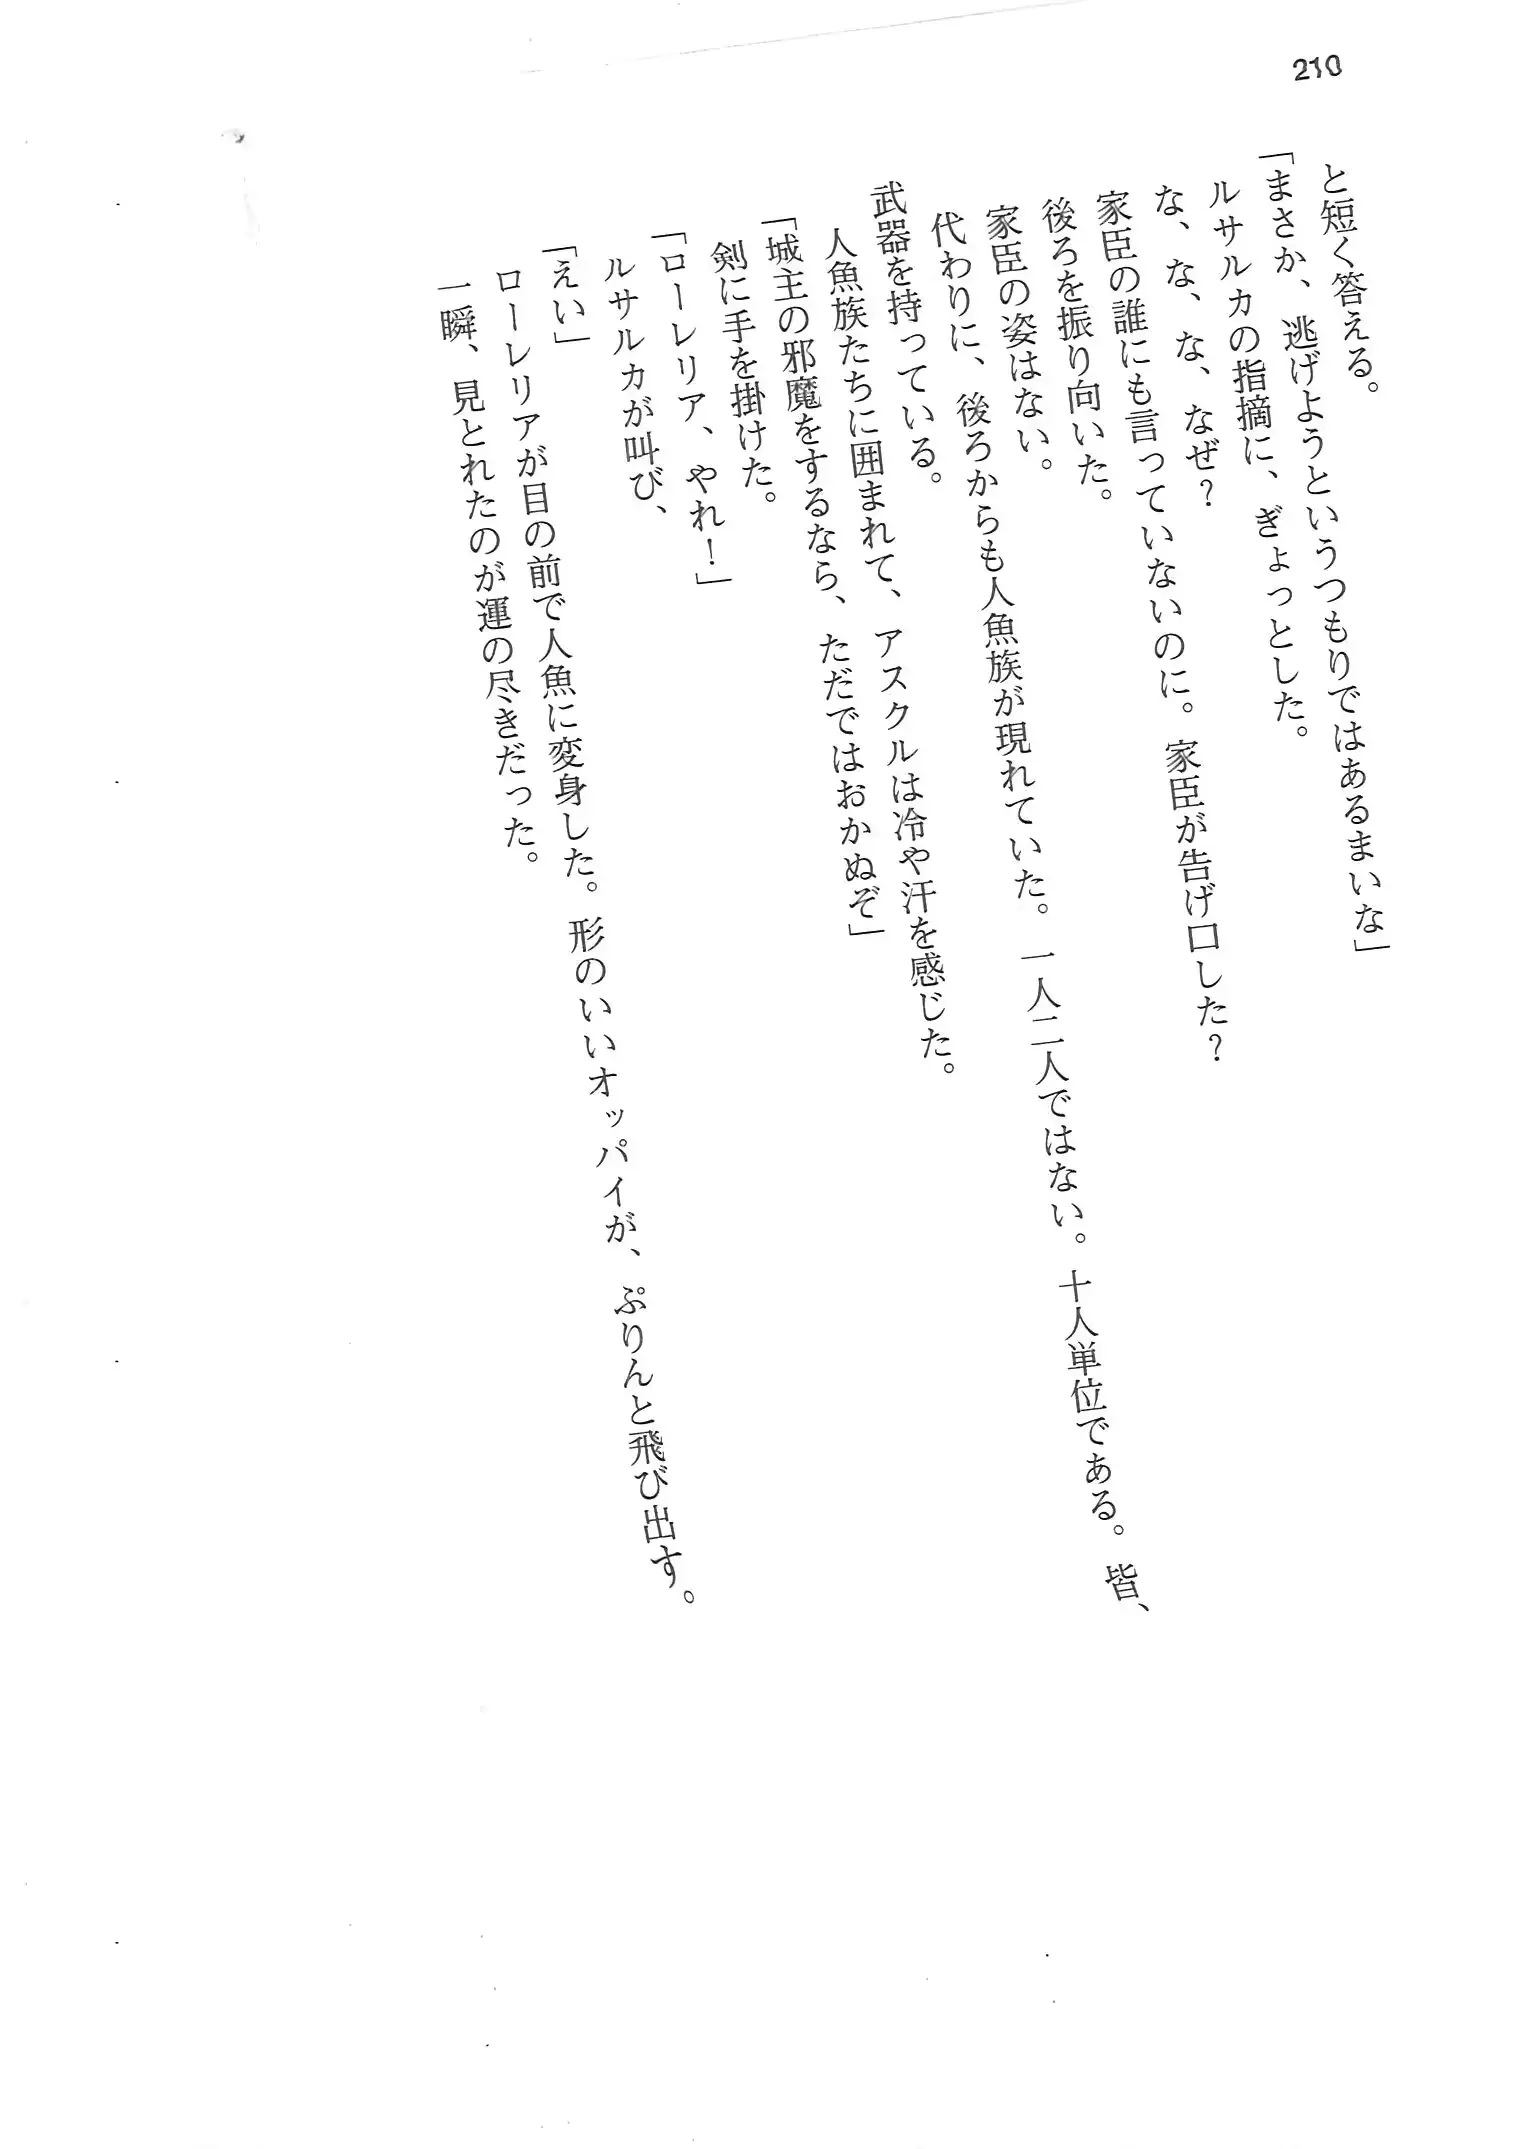 210
と短く答える。
「まさか、逃げようというつもりではあるまいな」
ルサルカの指摘に、ぎょっとした。
な、な、な、なぜ？
家臣の誰にも言っていないのに。家臣が告げ口した？
後ろを振り向いた。
家臣の姿はない。
代わりに、後ろからも人魚族が現れていた。一人二人ではない。十人単位である。皆、
武器を持っている。
人魚族たちに囲まれて、アスクルは冷や汗を感じた。
「城主の邪魔をするなら、ただではおかぬぞ」
剣に手を掛けた。
「ローレリア、やれ！」
ルサルカが叫び、
「えい」
ローレリアが目の前で人魚に変身した。形のいいオッパイが、ぷりんと飛び出す。
一瞬、見とれたのが運の尽きだった。